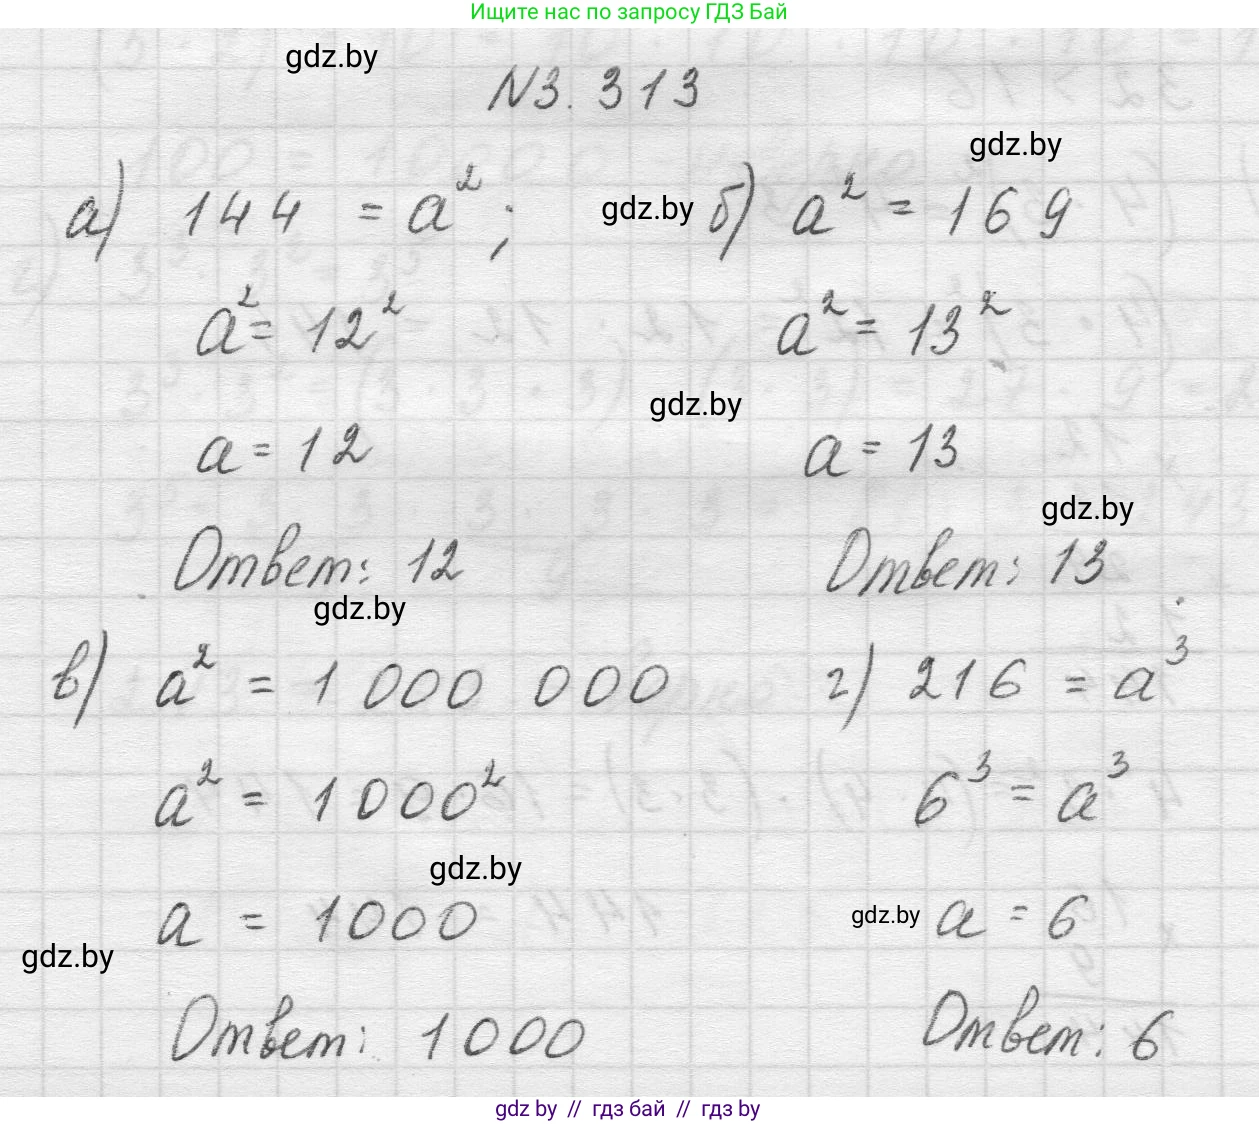 Ищите нас по запросу ГДЗ Бай
gdz.by
N3.313
gdz.by
а) 144 = a²;
gdz.by
б) a² = 169
a² = 12²
a² = 13²
gdz.by
a = 12
a = 13
gdz.by
Ответ: 12
Ответ: 13
gdz.by
в) a² = 1 000 000
г) 216 = a³
a² = 1000²
6³ = a³
gdz.by
a = 1000
gdz.by
a = 6
gdz.by
Ответ: 1000
Ответ: 6
gdz by // гдз бай // гдз by